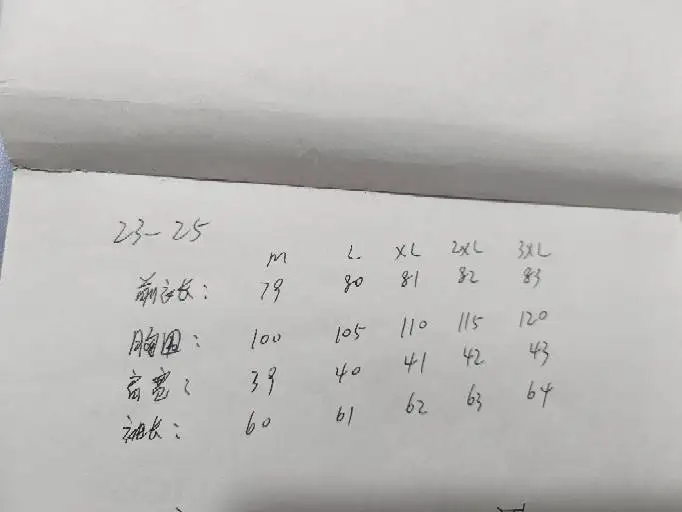 23-25
M L XL 2XL 3XL
前衣长: 79 80 81 82 83
胸围: 100 105 110 115 120
肩宽: 39 40 41 42 43
袖长: 60 61 62 63 64